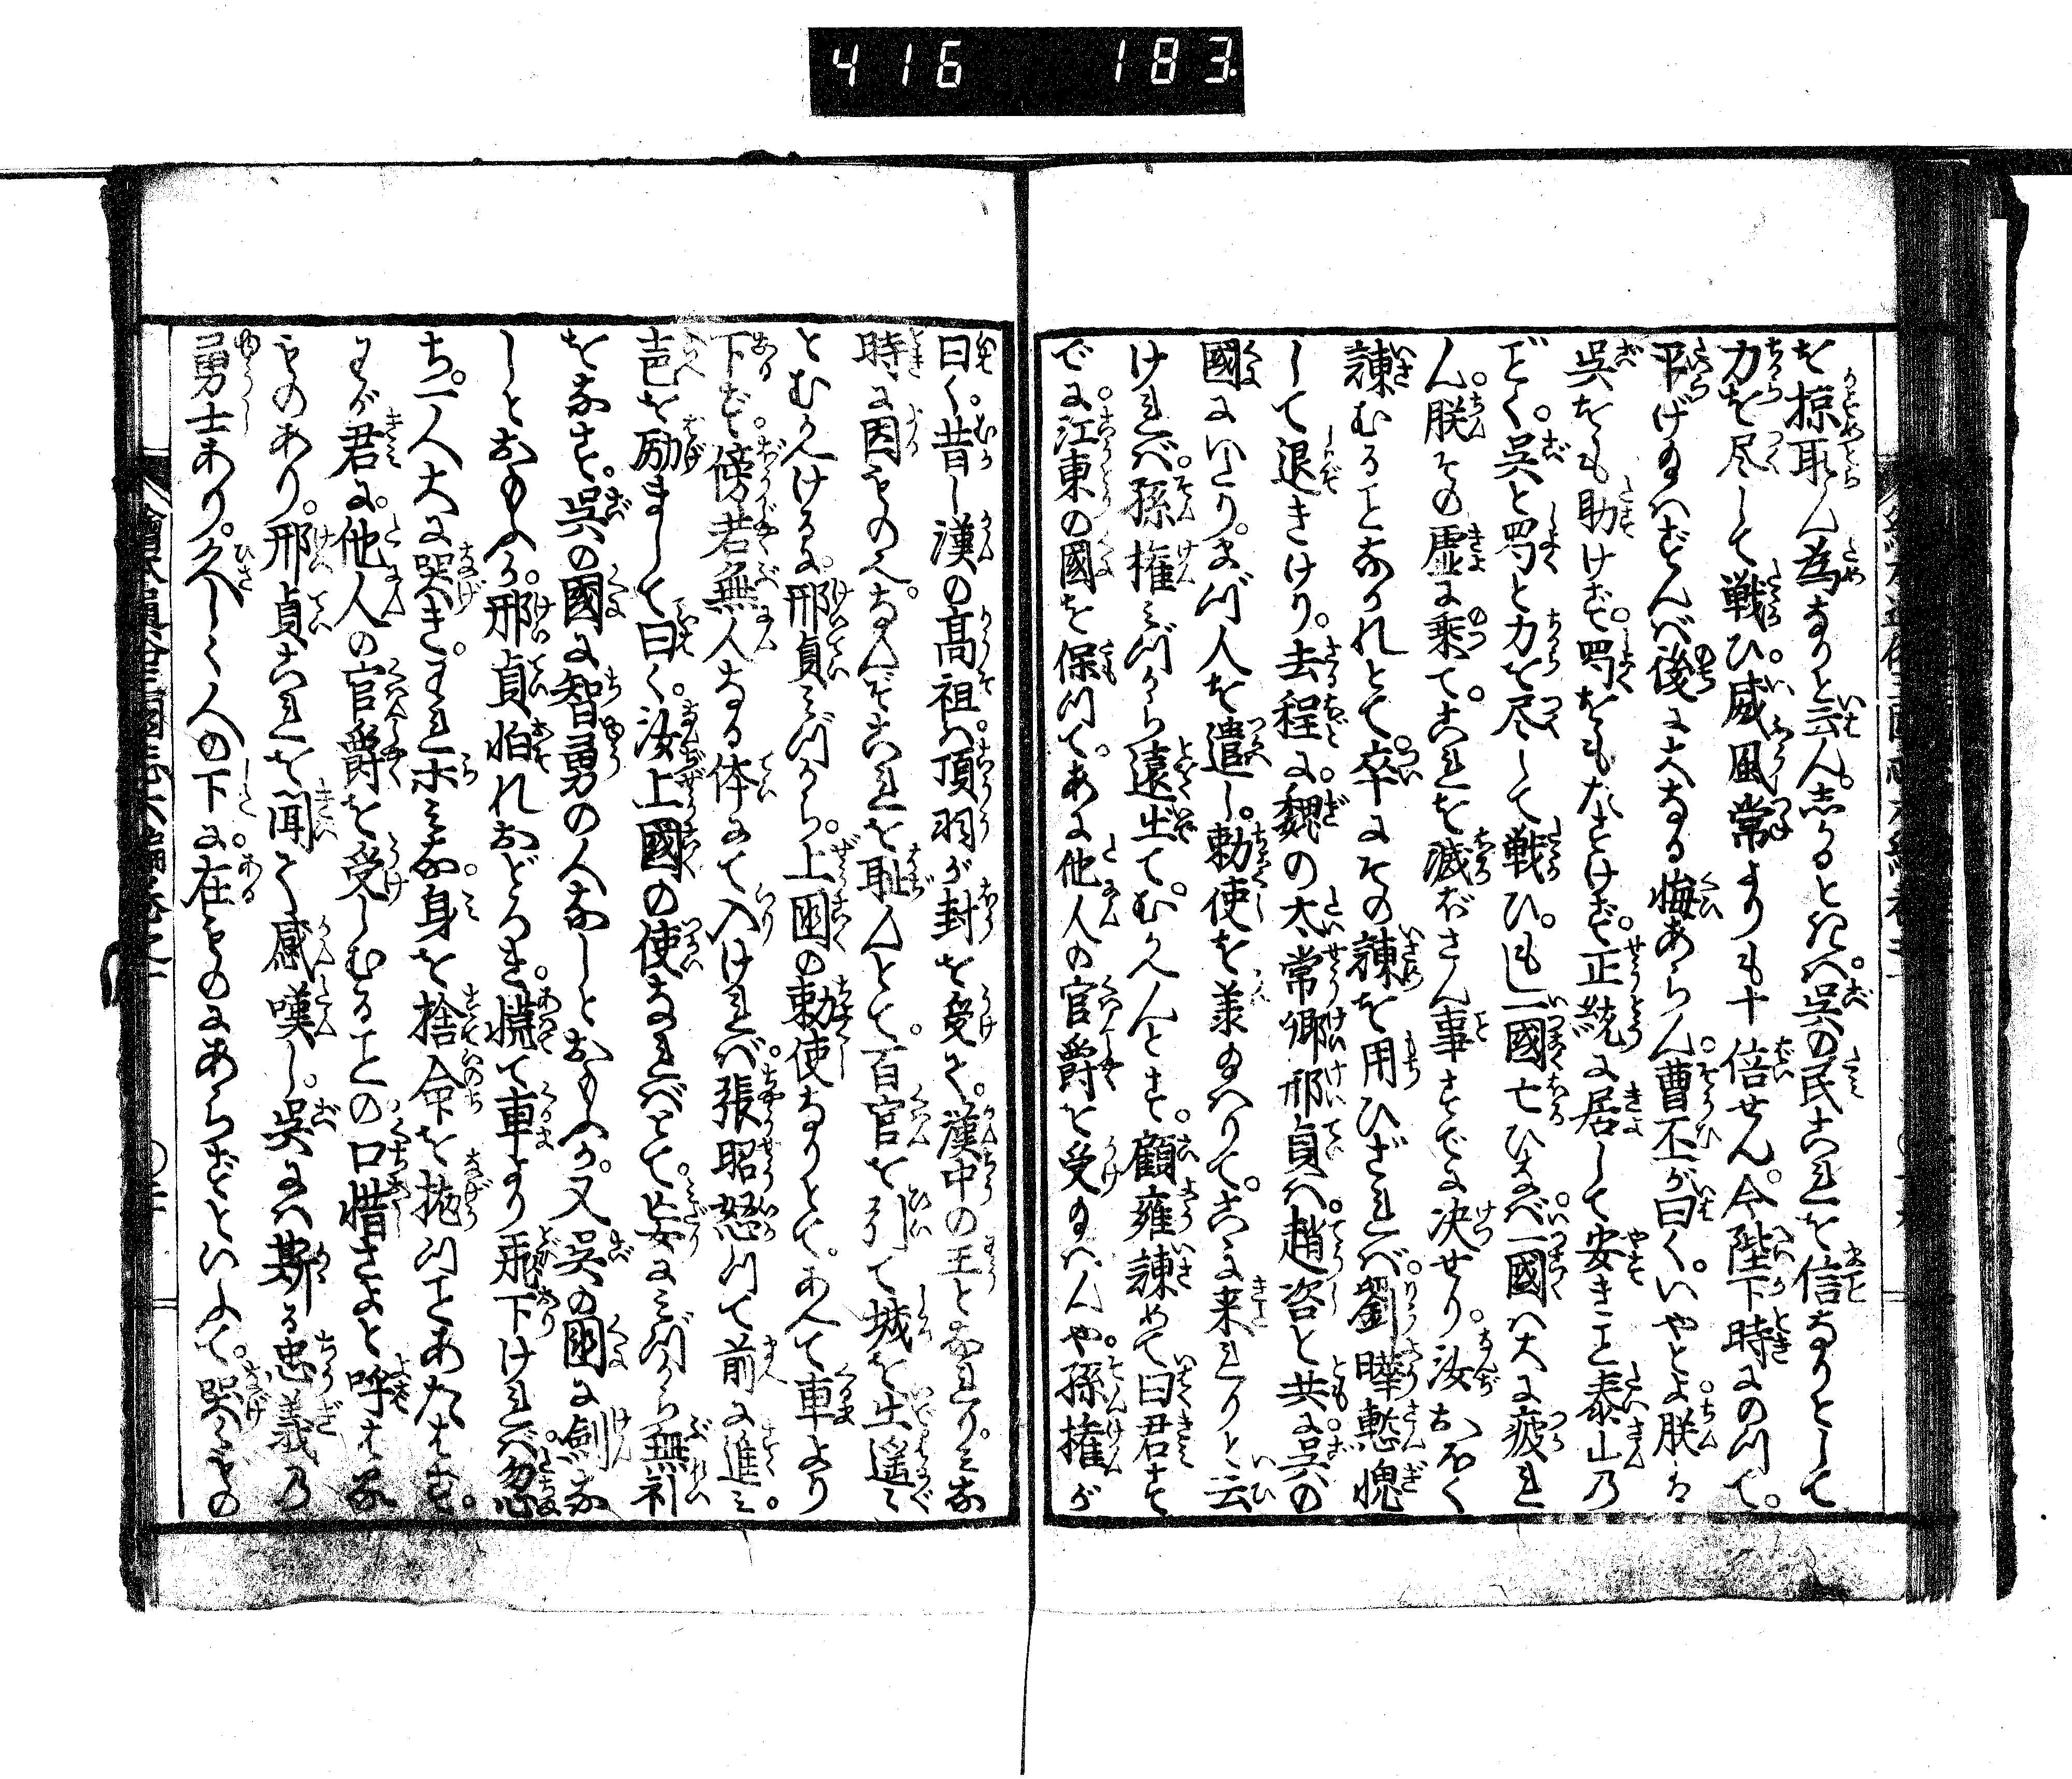 416 183
を掠取ん為なりと云ん。志かるときハ。呉の民これを信なりとして
力を尽して戦ひ。威風常よりも十倍せん。今陛下時にのつて。
平げ給ハずんバ後に大なる悔あらん。曹丕が曰く。いやとよ朕ハ
呉をも助けず。蜀をもたすけず。正統に居して安きこと泰山の
ごとく。呉と蜀と力を尽して戦ひ。もし一國亡ひなバ。一國ハ大に疲れ
ん。朕その虚に乗て。これを滅ぼさん事すでに決せり。汝かへつて
諫むることなかれとて。卒にその諫を用ひざれバ。劉曄慙愧
して退きけり。去程に。魏の太常卿邢貞ハ。趙咨と共に。呉の
國にいたり。まづ人を遣し。勅使を承給ハりて。こゝに来れりと云
けれバ。孫権ミづから遠出て。むかへんとす。顧雍諫めて曰君す
でに。江東の國を保つて。あに他人の官爵を受給ハんや。孫権が
曰く。昔し漢の髙祖ハ。項羽が封を受て。漢中の王となれり。ミな
時に因ものへ。なんぞこれを恥んとて。百官を引て城を出遥に
とむかへける。邢貞ミづから。上國の勅使なりとて。あへて車より
下ず。傍若無人なる体にて入けれバ。張昭怒つて前に進ミ。
声を励まして曰く。汝上國の使なれバとて。妄にミづから無礼
をなす。呉の國に智勇の人なしとおもふか。又呉の國に劍な
しとおもふか。邢貞怕れおどろき。慌て車より飛下けれバ。忽
ち一人大に哭き。われホミな。身を捨命を抛つことあたはず。
わが君に。他人の官爵を受しむることの口惜さよと呼はる
ものあり。邢貞これを聞て感嘆し。呉にハ斯る忠義の
勇士あり。久しく人の下に。在ものにあらずといふて。哭くもの